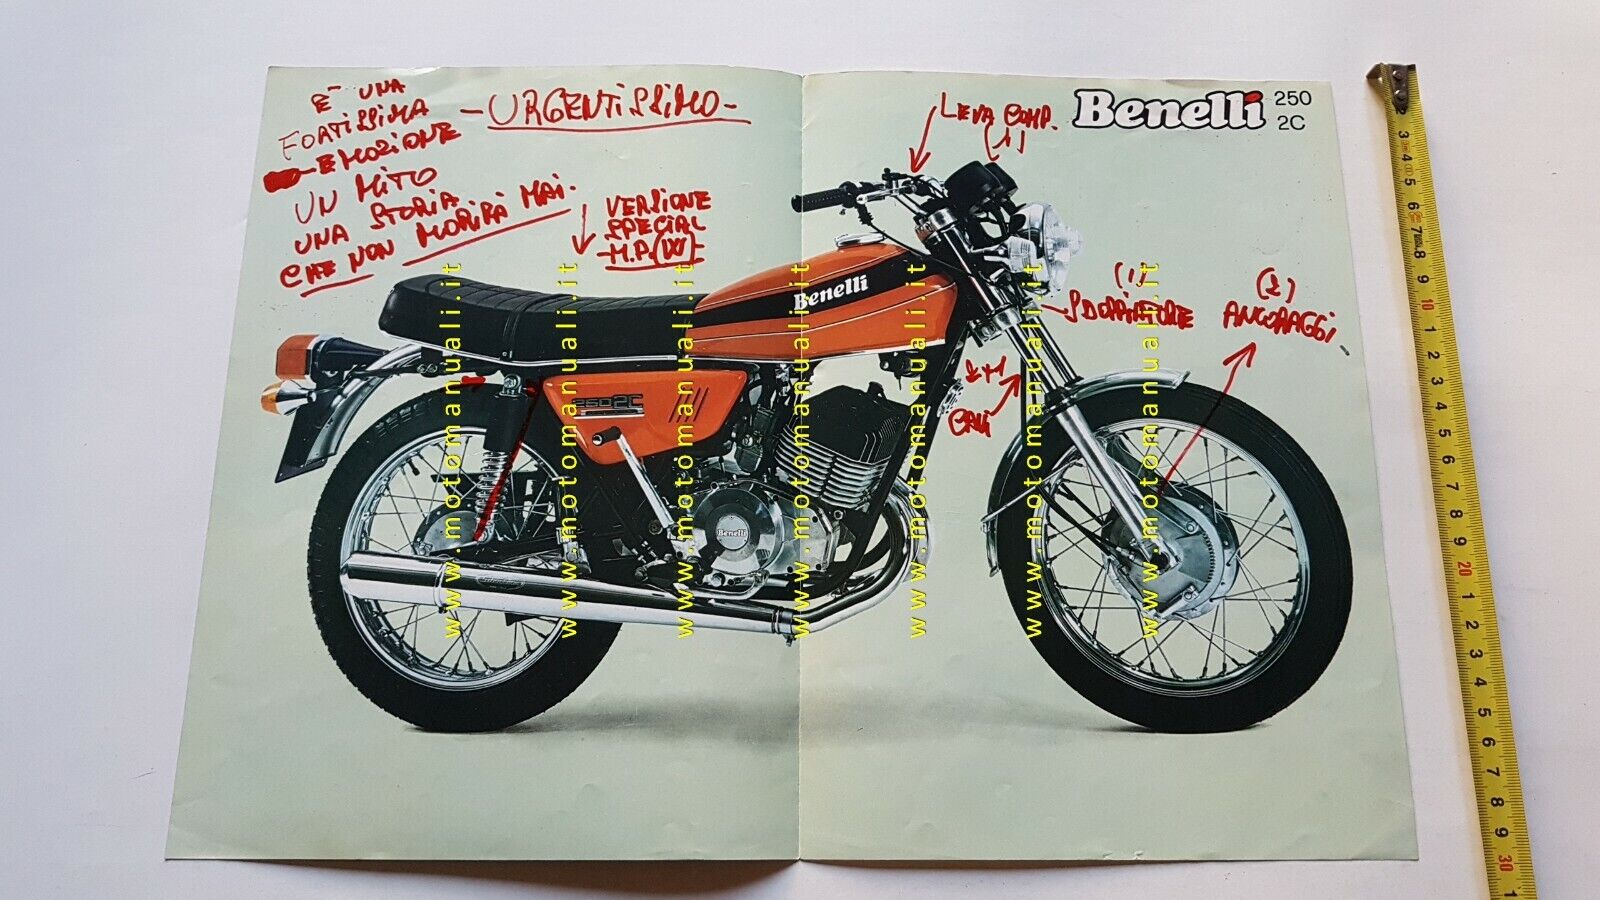 È UNA
FORTISSIMA
EMOZIONE
UN MITO
UNA STORIA
CHE NON MORIRÀ MAI.
-URGENTISSIMO-
VERSIONE
SPECIAL
LEVA COMP.
(1)
Benelli 250
2C
Benelli
(1)
SDOPPIATORE
(2)
ANCORAGGI
CAVI
250 2C
Benelli
www.motomanuali.it
www.motomanuali.it
www.motomanuali.it
www.motomanuali.it
www.motomanuali.it
www.motomanuali.it
www.motomanuali.it
2
3
4
5
6
7
8
9
10
1
1
2
3
4
5
6
7
8
9
20
1
2
3
4
5
6
7
8
9
30
1